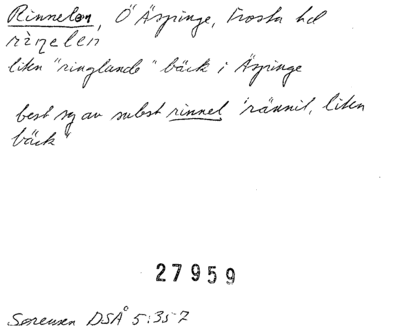 Rinnelen, Ö Äspinge, Frosta hd
rìnelen
liten "ringlande" bäck i Äspinge
best sg av subst rinnel 'rännil, liten
bäck'
27959
Sørensen DSÅ 5:357